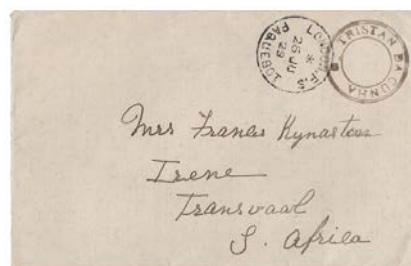 LONDON. F.S
*
26 JU
29
PAQUEBOT
TRISTAN DA CUNHA
Mrs Frances Kynaston
Irene
Transvaal
S. Africa